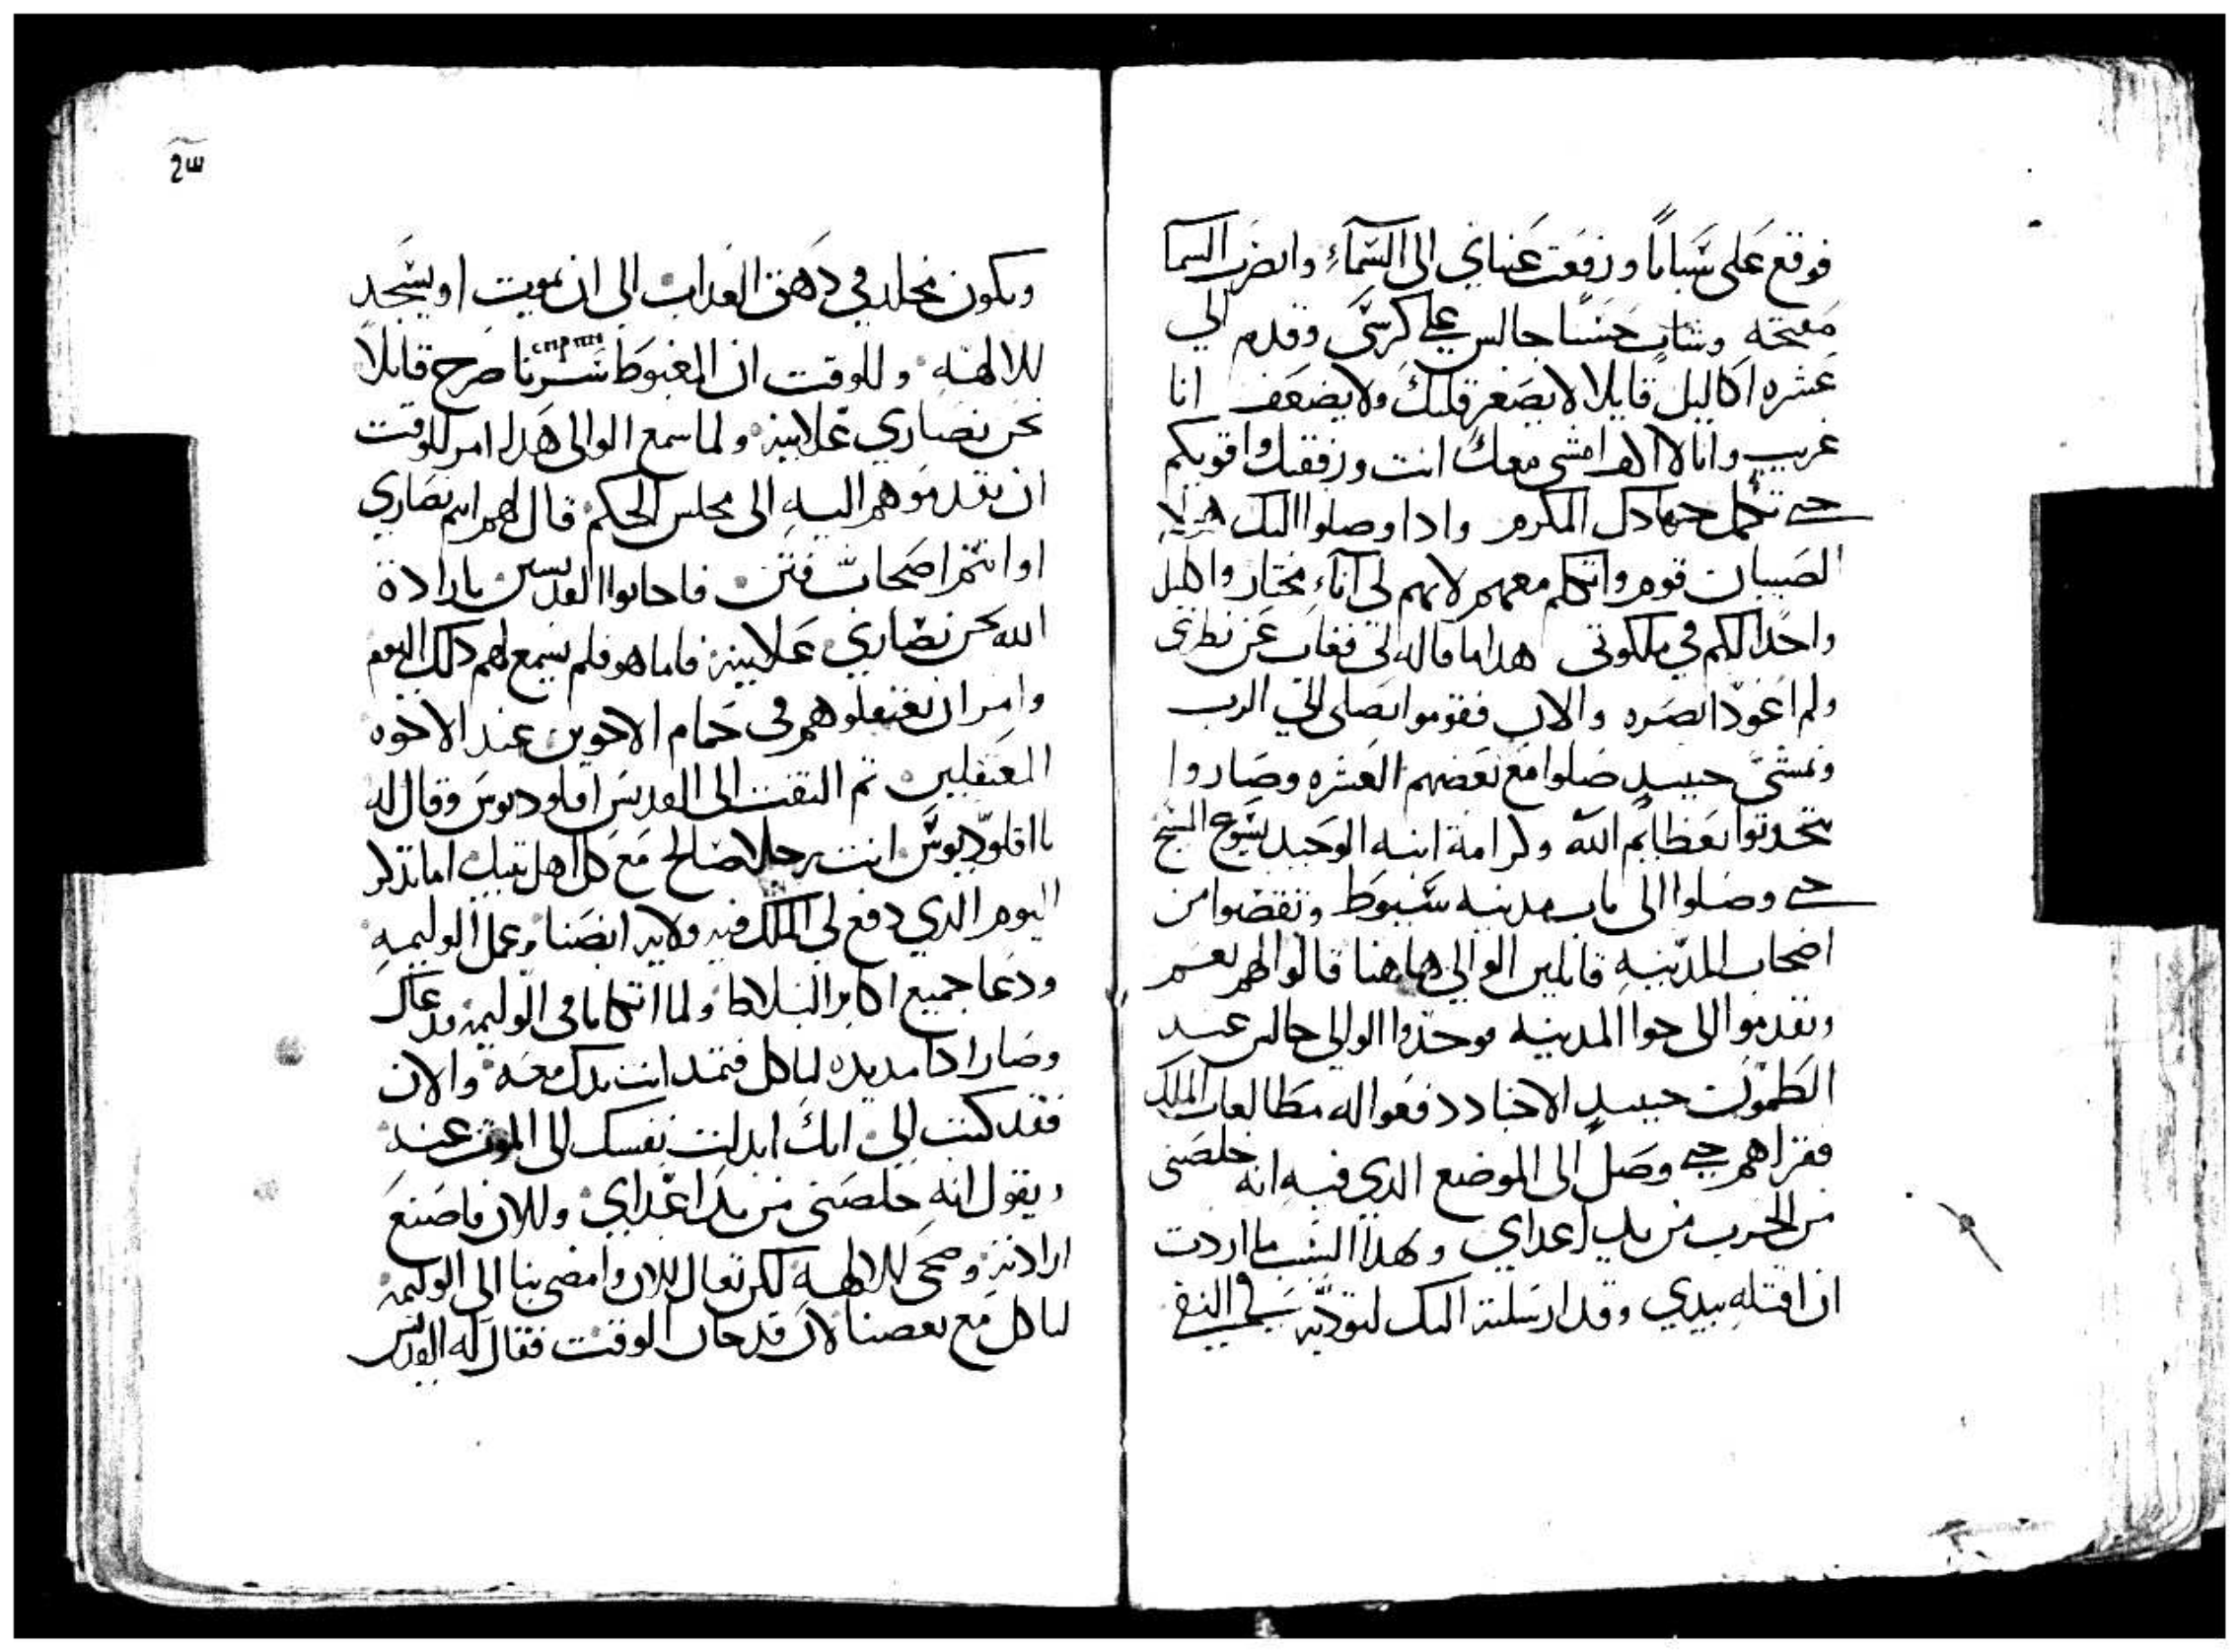 فوقع على سباتا ورفعت عيناي الى السماء وابصرت السما
مفتحه وشاب حسنا جالس على كرسي وقدم الي
عشره اكاليل قايلا لا يصغر قلبك ولا يضعف انا
غريب وانا لاالاه امشي معك انت ورفقتك واقويكم
حتى تكمل جهادك المكرم واذا وصلوا اليك هولا
الصبيان قوم واتكلم معهم لانهم لي آناء مختار واكليل
واحدا لكم في ملكوتي هذا ما قاله لي فغاب عن نظري
ولم اعود ابصره والان فقوموا نصلي الى الرب
ونمشي حينيدٍ صلوا مع بعضهم العشره وصاروا
يتحدثوا بعظايم الله وكرامة ابنه الوحيد يسوع المسيح
حتى وصلوا الى باب مدينه سيوط وتقصوا من
اصحاب المدينه قايلين الوالي هاهنا قالوا لهم نعم
وتقدموا الى جوا المدينه فوجدوا الوالي جالس عند
الطمون حينيدٍ الاجناد دفعوا له مطالعات الملك
فقراهم حتى وصل الى الموضع الذي فيه انه خلصني
من الحرب من يد اعداي ولهذا السبب ما اردت
ان اقتله بيدي وقد ارسلته اليك لتوديه في النفي
ⲥⲱ
ويكون مخلد في دهق العذاب الى ان يموت او يسجد
للالهه وللوقت ان المغبوط سرنا صرخ قايلاً
نحن نصاري علانيه ولما سمع الوالي هذا امر للوقت
ان يقدموهم اليه الى مجلس الحكم قال لهم انتم نصاري
او انتم اصحاب فتن فاجابوا القديسين بارادة
الله نحن نصاري علانيه فاما هو فلم يسمع لهم ذلك اليوم
وامر ان يعتقلوهم في حمام الاخوين عند الاخوه
المعتقلين ثم التفت الى القديس اقلوديوس وقال له
يا اقلوديوس انت رجلا صالح مع كل اهل بيتك اما تذكر
اليوم الذي دفع لي الملك فيه ولاية انصنا وعمل الوليمه
ودعا جميع اكابر البلاط ولما اتكانا في الوليمه
وصار اذا مد يده لياكل فتمد انت يدك معه والان
فقد كتب الي انك ابدلت نفسك الى الموت عنده
ويقول انه خلصني من يد اعداي وللان فاصنع
ارادته وضحي للالهه لكن تعال للان وامضي بنا الى الوليمه
لناكل مع بعضنا لان قد حان الوقت فقال له القديس